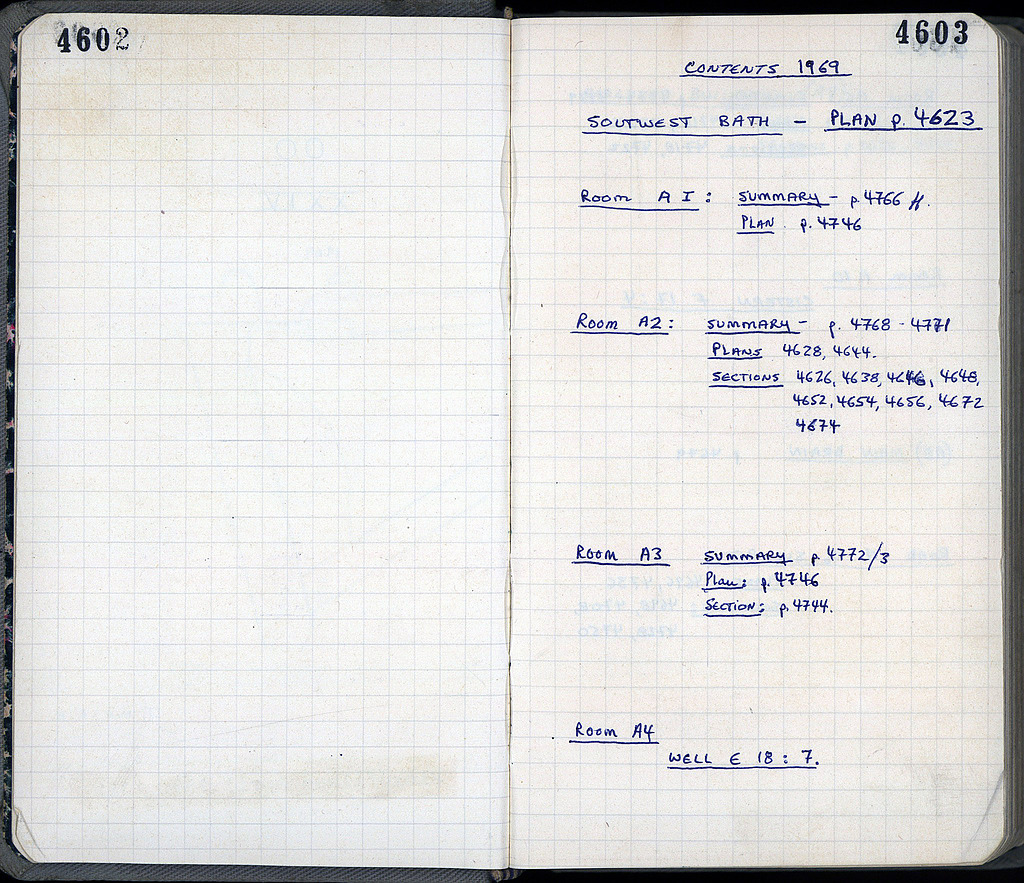 4602
4603
CONTENTS 1969
SOUTWEST BATH – PLAN p. 4623
ROOM A I : SUMMARY – p. 4766 ff.
PLAN p. 4746
ROOM A2 : SUMMARY – p. 4768 - 4771
PLANS 4628, 4644.
SECTIONS 4626, 4638, 4646, 4648,
4652, 4654, 4656, 4672
4674
ROOM A3 SUMMARY p. 4772/3
Plan : p. 4746
SECTION : p. 4744.
ROOM A4
WELL E 18 : 7.